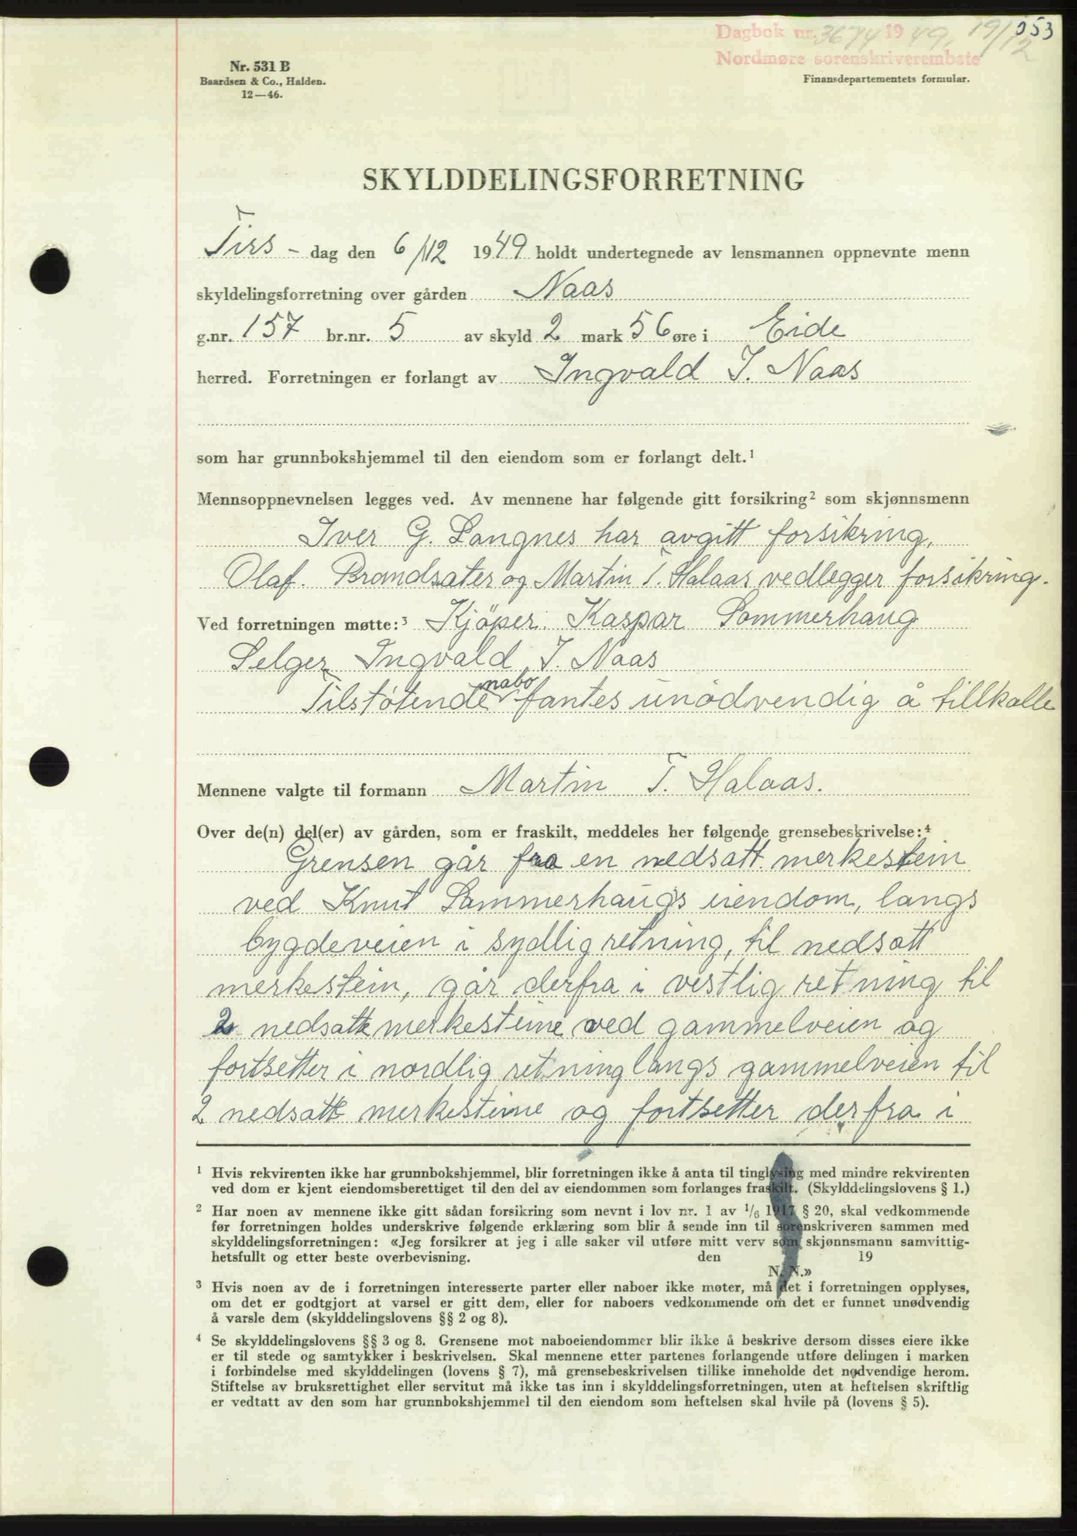 053
Dagbok nr. 3674 1949, 19/12
Nordmøre sorenskriverembete
Nr. 531 B
Baardsen & Co., Halden.
12—46.
Finansdepartementets formular.
SKYLDDELINGSFORRETNING
Tirs - dag den 6/12 1949 holdt undertegnede av lensmannen oppnevnte menn
skyldelingsforretning over gården Naas
g.nr. 157 br.nr. 5 av skyld 2 mark 56 øre i Eide
herred. Forretningen er forlangt av Ingvald I. Naas
som har grunnbokshjemmel til den eiendom som er forlangt delt.¹
Mennsoppnevnelsen legges ved. Av mennene har følgende gitt forsikring² som skjønnsmenn
Iver G. Langnes har avgitt forsikring,
Olaf. Brandsæter og Martin T. Halaas vedlegger forsikring.
Ved forretningen møtte:³ Kjöper. Kaspar Sommerhaug
Selger Ingvald I. Naas
Tilstøtende nabo fantes unødvendig å tillkalle
Mennene valgte til formann Martin T. Halaas.
Over de(n) del(er) av gården, som er fraskilt, meddeles her følgende grensebeskrivelse:⁴
Grensen går fra en nedsatt merkestein
ved Knut Sammerhaugs eiendom, langs
bygdeveien i sydlig retning, til nedsatt
merkestein, går derfra i vestlig retning til
2 nedsatte merkesteine ved gammelveien og
fortsetter i nordlig retning langs gammelveien til
2 nedsatte merkesteine og fortsetter derfra i
¹ Hvis rekvirenten ikke har grunnbokshjemmel, blir forretningen ikke å anta til tinglysing med mindre rekvirenten
ved dom er kjent eiendomsberettiget til den del av eiendommen som forlanges fraskilt. (Skylddelingslovens § 1.)
² Har noen av mennene ikke gitt sådan forsikring som nevnt i lov nr. 1 av 1/6 1917 § 20, skal vedkommende
før forretningen holdes underskrive følgende erklæring som blir å sende inn til sorenskriveren sammen med
skylddelingsforretningen: «Jeg forsikrer at jeg i alle saker vil utføre mitt verv som skjønnsmann samvittig-
hetsfullt og etter beste overbevisning. den 19
N. N.»
³ Hvis noen av de i forretningen interesserte parter eller naboer ikke møter, må det i forretningen opplyses,
om det er godtgjort at varsel er gitt dem, eller for naboers vedkommende om det er funnet unødvendig
å varsle dem (skylddelingslovens §§ 2 og 8).
⁴ Se skylddelingslovens §§ 3 og 8. Grensene mot naboeiendommer blir ikke å beskrive dersom disses eiere ikke
er til stede og samtykker i beskrivelsen. Skal mennene etter partenes forlangende utføre delingen i marken
i forbindelse med skylddelingen (lovens § 7), må grensebeskrivelsen tillike inneholde det nødvendige herom.
Stiftelse av bruksrettighet eller servitut må ikke tas inn i skylddelingsforretningen, uten at heftelsen skriftlig
er vedtatt av den som har grunnbokshjemmel til den eiendom som heftelsen skal hvile på (lovens § 5).